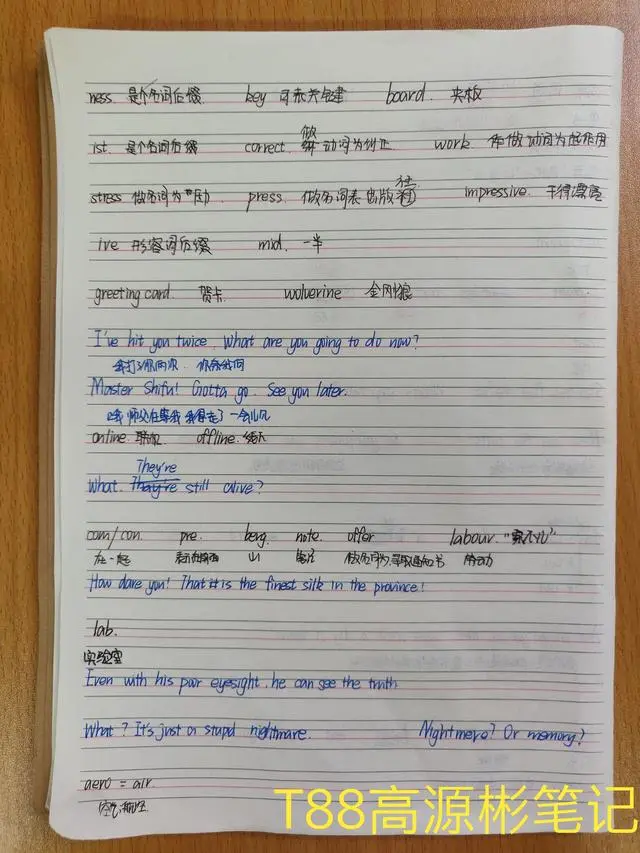 ness. 是个名词后缀 key 可表关键 board. 夹板
做
ist. 是个名词后缀 correct. 动词为纠正 work 作做动词为起作用
社
stress 做名词为 press. 做名词表出版 impressive. 干得漂亮
ive 形容词后缀 mid. 一半
greeting card. 贺卡 wolverine 金刚狼
I've hit you twice. What are you going to do now?
我打了你两次. 你
Master Shifu! Gotta go. See you later.
师父在等我 我得走了 一会儿见
online 联机 offline.
They're
What. They're still alive?
com/con. pre. berg. note. offer labour. "累不儿"
在一起 山 笔记 做名词为录取通知书 劳动
How dare you! That is the finest silk in the province!
lab.
实验室
Even with his poor eyesight, he can see the truth
What? It's just a stupid nightmare. Nightmere? Or memory?
aero = air.
空气
T88高源彬笔记